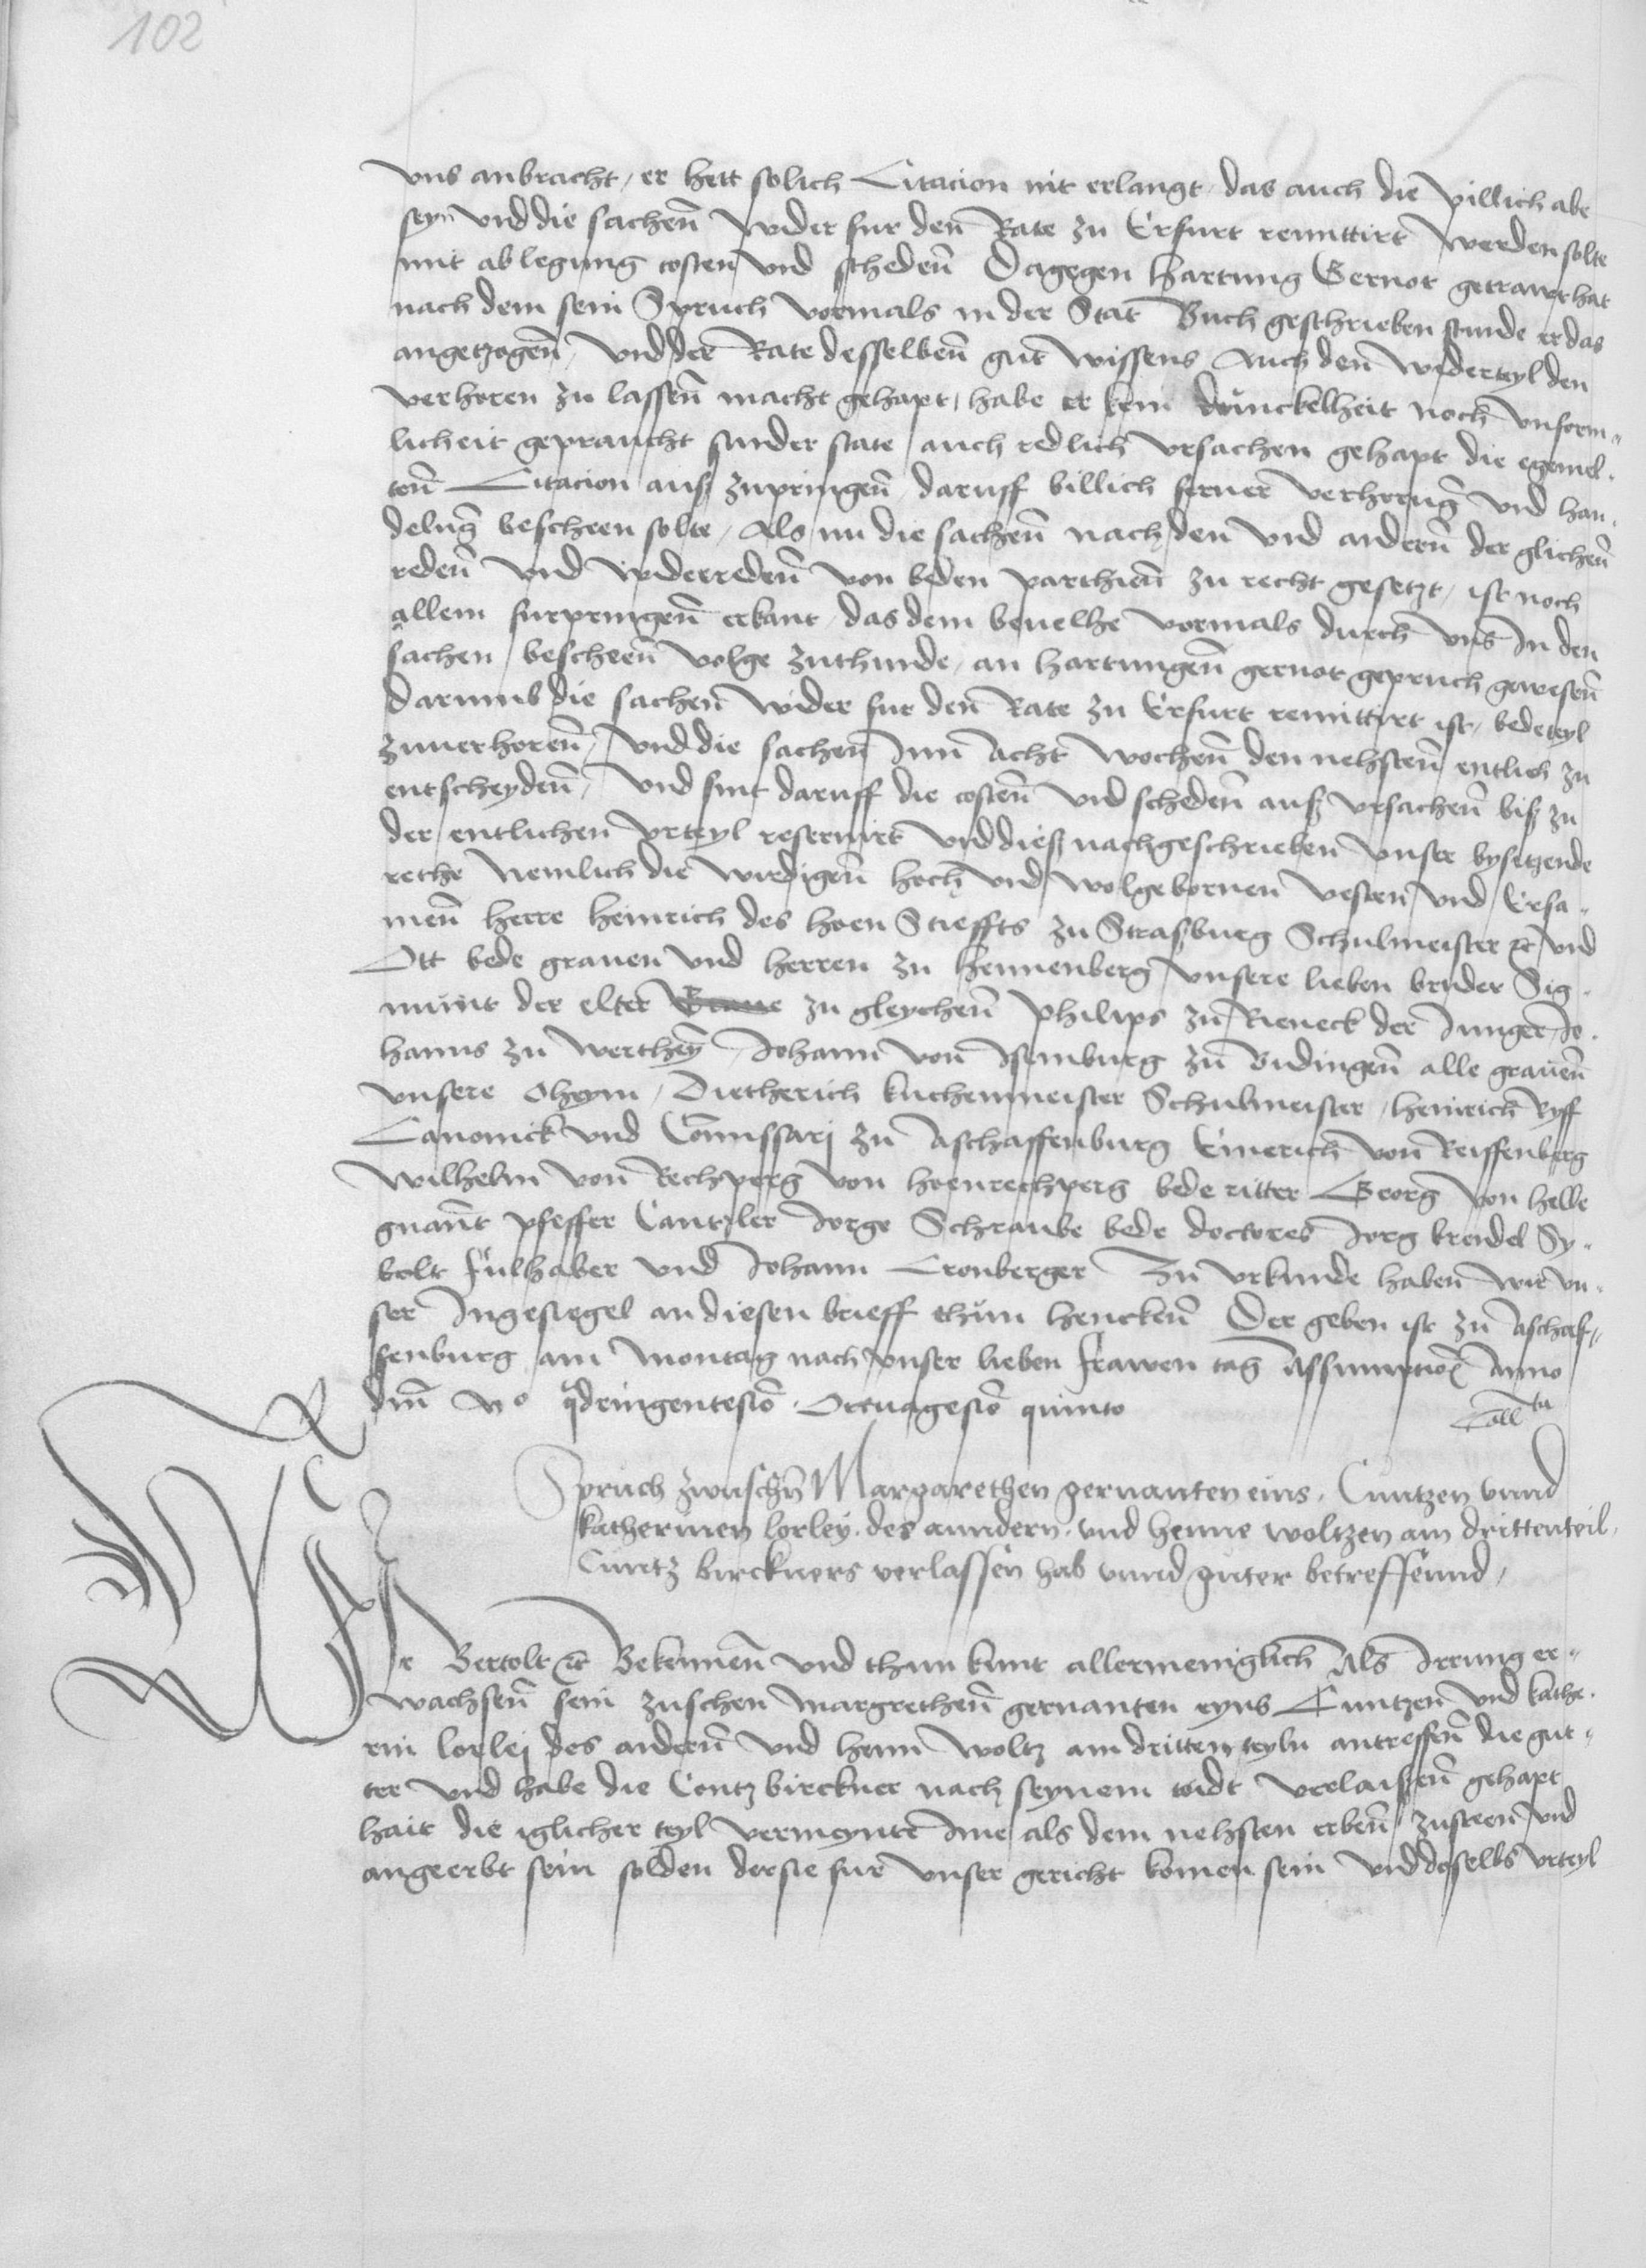 102
vns anbracht / er hett solich Citacion nit erlangt / das auch die pillich abe
seyn̄ vnd die sachen̄ wider fur den̄ Rate zu Erfurt remittirt werden solte
mit ablegung costen vnd scheden̄ Dagegen Hartung Gernot getrawt hat
nach dem sein Spruch vormals in der Stat Buch geschrieben stunde er das
angetzogen̄ / vnd der Rate desselben̄ gut wissens Auch den̄ widerteyl den
verhoren zu lassen̄ macht gehapt / habe er kein dunckelheit noch vnform„
licheit gepraucht sunder state auch redlich vrsachen gehapt die egemel„
ten̄ Citacion auß zupringen̄ / daruff billich ferner verhoruḡ vnd han„
deluḡ bescheen solte / Als nu die sachen̄ nach den vnd andern̄ der glichen̄
reden̄ vnd widerreden̄ von beden parthien̄ zu recht gesetzt / ist noch
allem furpringen̄ erkant / das dem beuelhe vormals durch vns In den
sachen bescheen̄ volge zuthunde / an Hartungen̄ gernot gepruch gewesen̄
darumb die sachen̄ wider fur den̄ Rate zu Erfurt remittirt ist / bede teyl
zuuerhoren̄ / vnd die sachen̄ Inn Acht wochen̄ den nehsten̄ entlich zu
entscheyden̄ / vnd sint daruff die costen̄ vnd scheden̄ auß vrsachen̄ biß zu
der entlichen vrteyl reseruirt vnd dieß nachgeschrieben vnser bysitzende
rethe Nemlich die wirdigen̄ hoch vnd wolgebornen vesten vnd Ersa„
men̄ Herre Heinrich des hoen Stieffts zu Straßburg Schulmeister ⁊c vnd
Ott bede grauen vnd herren zu Hennenberg / vnsere lieben bruder Sig„
munt der elter Graue zu gleychen̄ Philips zu Rieneck der Junger Jo„
hanns zu wertheȳ Johann von Isemburg zu Budingen̄ alle grauen̄
vnsere Oheym / Dietherich kuchenmeister Schulmeister / Heinrich Ryff
Canonick vnd Com̄issari zu Aschaffenburg Emerich von Reiffenberg
Wilhelm von Rechperg von hoenrechperg bede ritter Georg von Helle
gnan̄t Pfeffer Cantzler Jorge Schraube bede doctores Jorg brendel Sy„
bolt fulhaber vnd Johann Cronberger Zu vrkunde haben̄ wir vn„
ser Ingesiegel an diesen brieff thun hencken̄ Der geben ist zu Aschaf„
fenburg am Montag nach vnser lieben frawen tag Assumption̄ Anno
dn̄i Mo qdringentesio͞ Octuagesio͞ quinto
Coll ta
Spruch zwuschn̄ Margarethen gernanten eins / Cuntzen vnnd
katherinen lorley / des anndern / vnd henne woltzen am drittenteil /
Cuntz birckners verlassen hab vnnd guter betreffennd /
WIr Bertolt ⁊c Bekennen̄ vnd thun kunt allermeniglich Als Irrung er„
wachsen̄ sein zuschen margrethen̄ gernanten eyns Cuntzen vnd kathe„
rin lorlej des andern̄ vnd henn woltz am dritten teyln antreffen̄ die gut„
ter vnd habe die Contz birckner nach seynem todt verlaißen̄ gehapt
hait die iglicher teyl vermeynte Ime als dem nehsten erben̄ zusteen vnd
angeerbt sein solden der sie fur vnser gericht komen sein vnd doselbs vrteyl